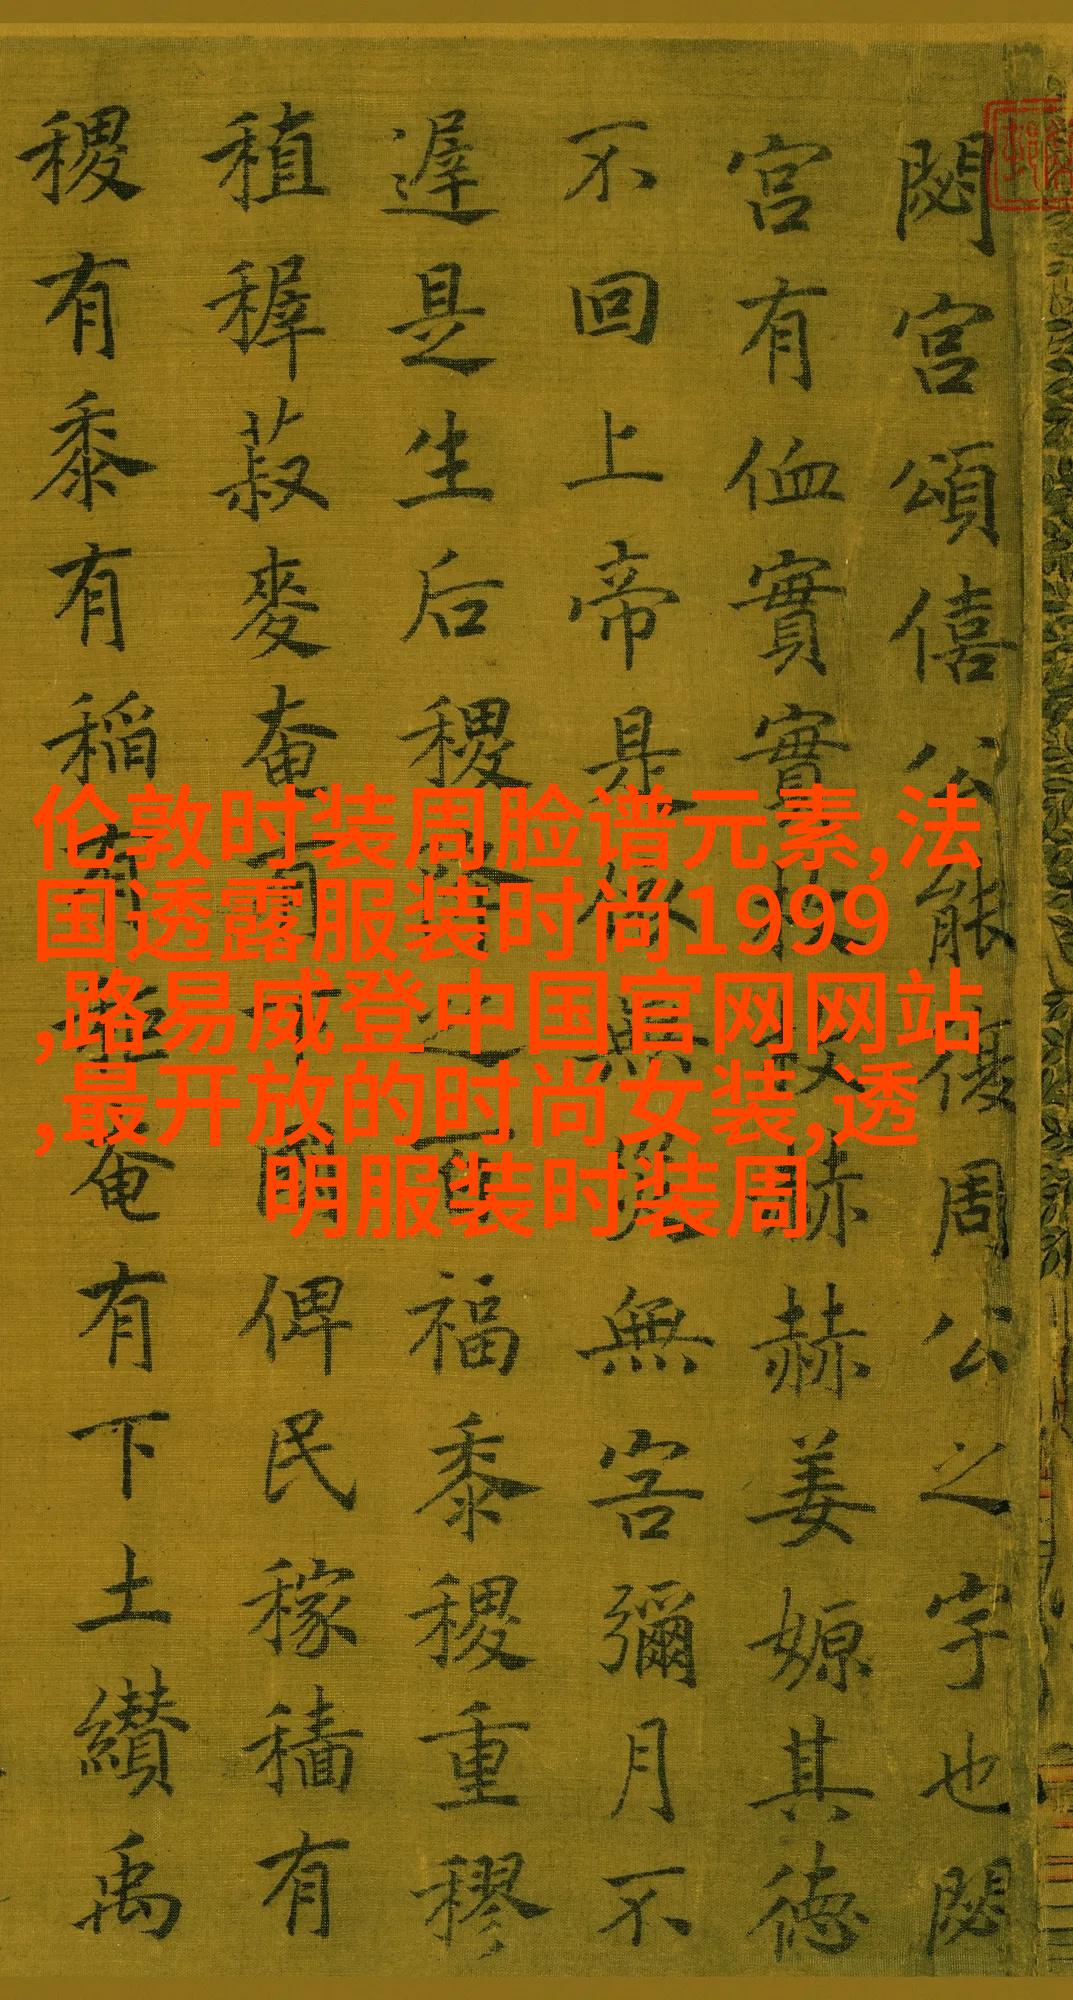 閟宮頌僖公能復周公之宇也閟
宮有侐實實枚枚赫赫姜嫄其德
不回上帝是依無災無害彌月不
遲是生后稷降之百福黍稷重穋
稙穉菽麥奄有下國俾民稼穡有
稷有黍有稻有秬奄有下土纘禹
伦敦时装周脸谱元素,法
国透露服装时尚1999
,路易威登中国官网网站
,最开放的时尚女装,透
明服装时装周